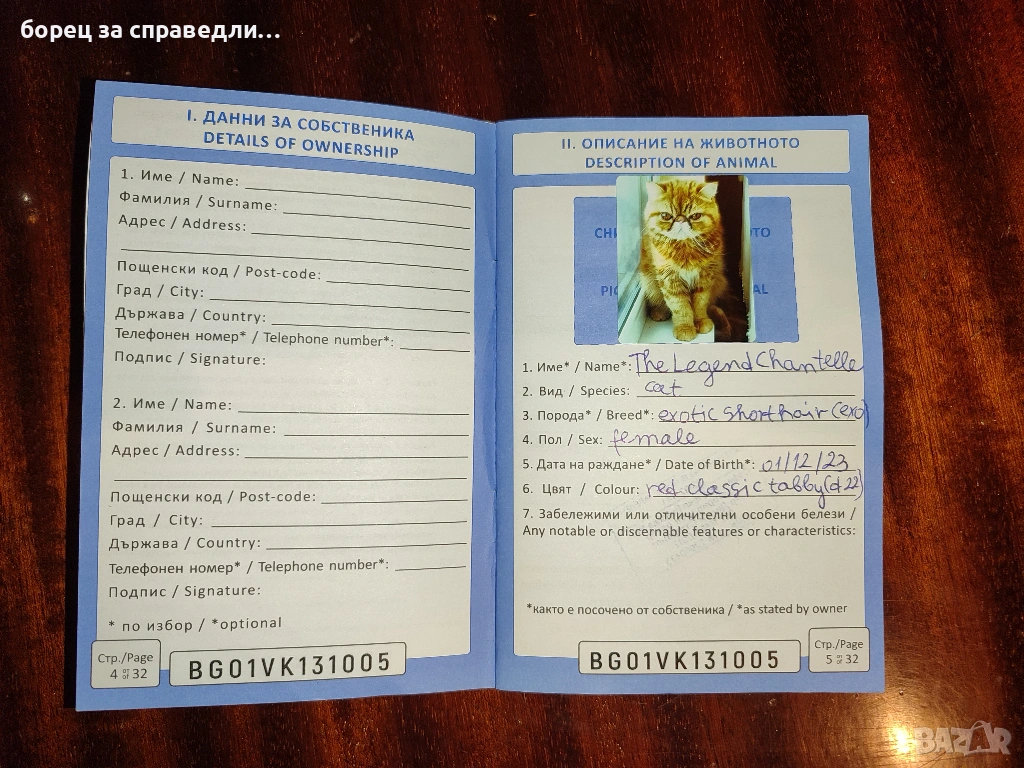 борец за справедли...
I. ДАННИ ЗА СОБСТВЕНИКА
DETAILS OF OWNERSHIP
1. Име / Name:
Фамилия / Surname:
Адрес / Address:
Пощенски код / Post-code:
Град / City:
Държава / Country:
Телефонен номер* / Telephone number*:
Подпис / Signature:
2. Име / Name:
Фамилия / Surname:
Адрес / Address:
Пощенски код / Post-code:
Град / City:
Държава / Country:
Телефонен номер* / Telephone number*:
Подпис / Signature:
* по избор / *optional
Стр./Page
4 от/of 32
BG01VK131005
II. ОПИСАНИЕ НА ЖИВОТНОТО
DESCRIPTION OF ANIMAL
1. Име* / Name*: The Legend Chantelle
2. Вид / Species: cat
3. Порода* / Breed*: exotic shorthair (exo)
4. Пол / Sex: female
5. Дата на раждане* / Date of Birth*: 01/12/23
6. Цвят / Colour: red classic tabby (d 22)
7. Забележими или отличителни особени белези /
Any notable or discernable features or characteristics:
*както е посочено от собственика / *as stated by owner
BG01VK131005
Стр./Page
5 от/of 32
BAZAR